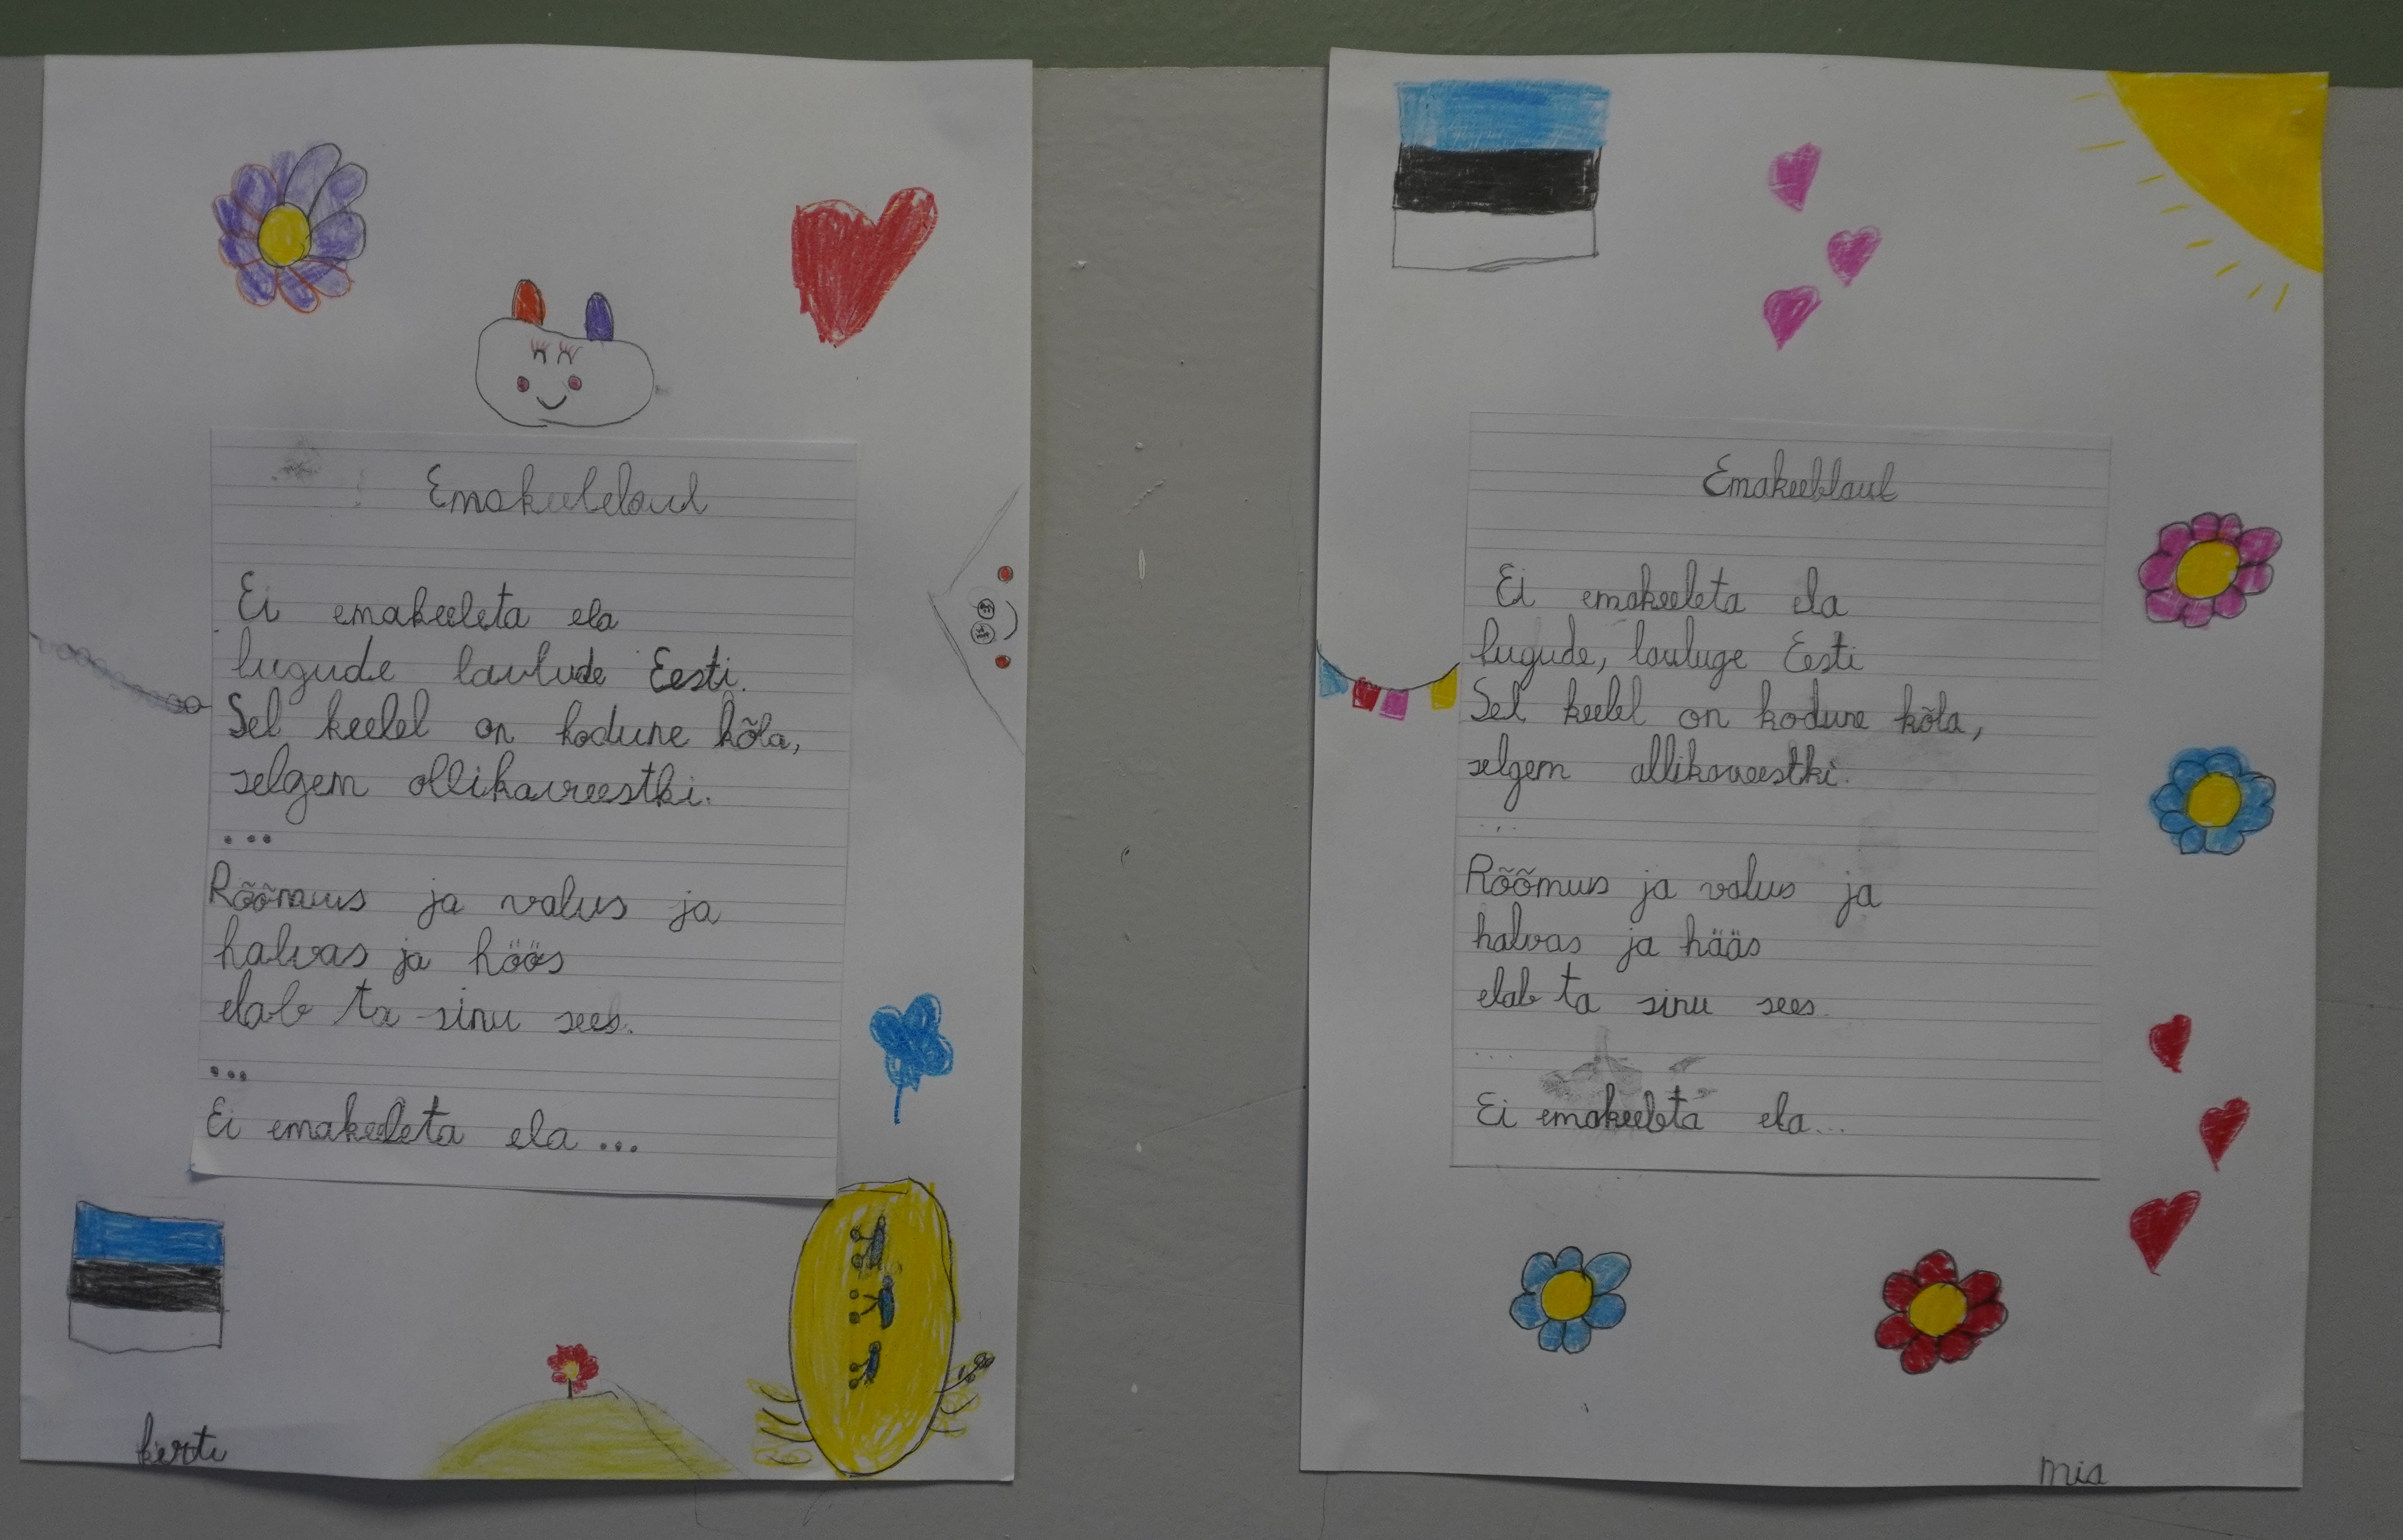 Emakeelelaul
Ei emakeeleta ela
lugude laulude Eesti.
Sel keelel on kodune kõla,
selgem ollikaveestki.
...
Rõõmus ja valus ja
halvas ja höös
elab ta sinu sees.
...
Ei emakeeleta ela...
kerti
Emakeelelaul
Ei emakeeleta ela
lugude, lauluge Eesti
Sel keelel on kodune kõla,
selgem allikaveestki.
...
Rõõmus ja valus ja
halvas ja hääs
elab ta sinu sees.
....
Ei emakeeleta ela...
mia